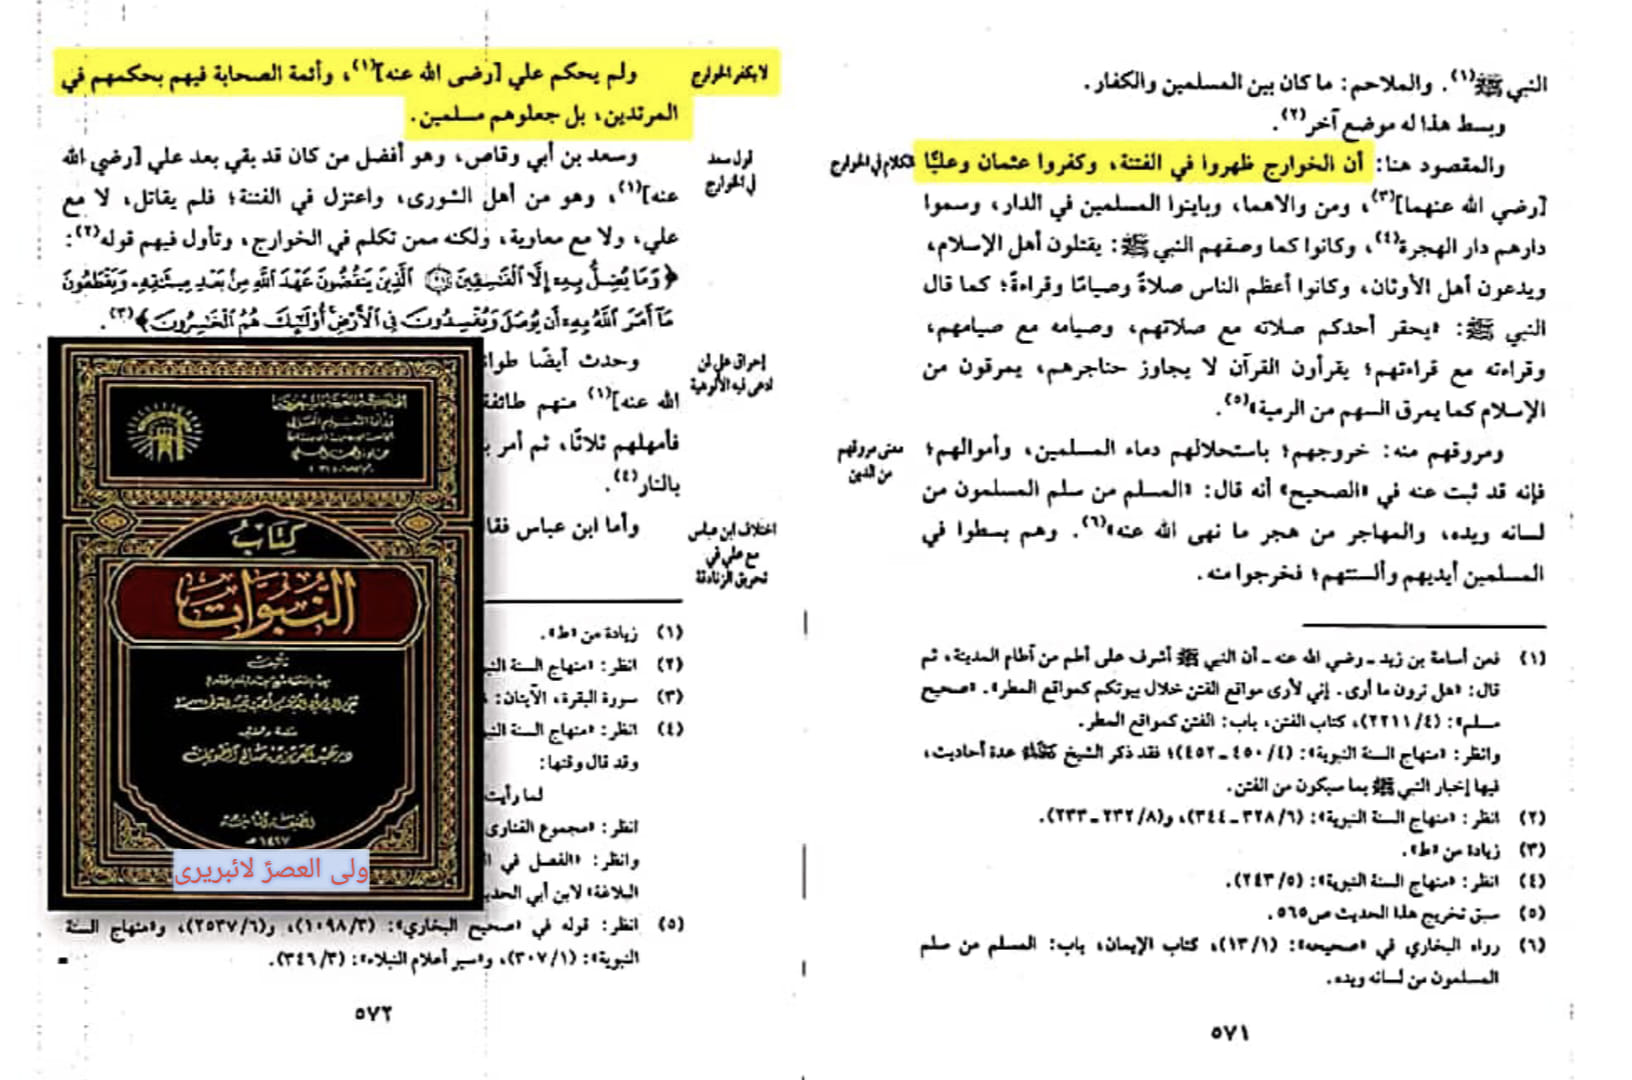 النبي ﷺ(١). والملاحم: ما كان بين المسلمين والكفار.
وبسط هذا له موضع آخر(٢).
والمقصود هنا: أن الخوارج ظهروا في الفتنة، وكفروا عثمان وعليًّا
الكلام في الخوارج
[رضي الله عنهما](٣)، ومن والاهما، وباينوا المسلمين في الدار، وسموا
دارهم دار الهجرة(٤)، وكانوا كما وصفهم النبي ﷺ: يقتلون أهل الإسلام،
ويدعون أهل الأوثان، وكانوا أعظم الناس صلاةً وصيامًا وقراءةً؛ كما قال
النبي ﷺ: «يحقر أحدكم صلاته مع صلاتهم، وصيامه مع صيامهم،
وقراءته مع قراءتهم؛ يقرأون القرآن لا يجاوز حناجرهم، يمرقون من
الإسلام كما يمرق السهم من الرمية»(٥).
ومروقهم منه: خروجهم؛ باستحلالهم دماء المسلمين، وأموالهم؛
معنى مروقهم
من الدين
فإنه قد ثبت عنه في «الصحيح» أنه قال: «المسلم من سلم المسلمون من
لسانه ويده، والمهاجر من هجر ما نهى الله عنه»(٦). وهم بسطوا في
المسلمين أيديهم وألسنتهم؛ فخرجوا منه.
(١) فعن أسامة بن زيد ـ رضي الله عنه ـ أن النبي ﷺ أشرف على أطم من آطام المدينة، ثم
قال: «هل ترون ما أرى. إني لأرى مواقع الفتن خلال بيوتكم كمواقع المطر». «صحيح
مسلم»: (٢٢١١/٤)، كتاب الفتن، باب: الفتن كمواقع المطر.
وانظر: «منهاج السنة النبوية»: (٤٥٠/٤ ـ ٤٥٢)؛ فقد ذكر الشيخ عدة أحاديث،
فيها إخبار النبي ﷺ بما سيكون من الفتن.
(٢) انظر: «منهاج السنة النبوية»: (٣٢٨/٦ ـ ٣٤٤)، و(٢٣٢/٨ ـ ٢٣٣).
(٣) زيادة من «ط».
(٤) انظر: «منهاج السنة النبوية»: (٢٤٣/٥).
(٥) سبق تخريج هذا الحديث ص٥٦٥.
(٦) رواه البخاري في «صحيحه»: (١٣/١)، كتاب الإيمان، باب: المسلم من سلم
المسلمون من لسانه ويده.
٥٧١
لا يكفر الخوارج
ولم يحكم علي [رضى الله عنه](١)، وأئمة الصحابة فيهم بحكمهم في
المرتدين، بل جعلوهم مسلمين.
وسعد بن أبي وقاص، وهو أفضل من كان قد بقي بعد علي [رضي الله
قول سعد
في الخوارج
عنه](١)، وهو من أهل الشورى، واعتزل في الفتنة؛ فلم يقاتل، لا مع
علي، ولا مع معاوية، ولكنه ممن تكلم في الخوارج، وتأول فيهم قوله(٢):
﴿وَمَا يُضِلُّ بِهِ إِلَّا الْفَاسِقِينَ ۝ الَّذِينَ يَنقُضُونَ عَهْدَ اللَّهِ مِنْ بَعْدِ مِيثَاقِهِ وَيَقْطَعُونَ
مَا أَمَرَ اللَّهُ بِهِ أَن يُوصَلَ وَيُفْسِدُونَ فِي الْأَرْضِ أُوْلَئِكَ هُمُ الْخَاسِرُونَ﴾(٣).
وحدث أيضًا
إحراق علي لمن
ادعى فيه الألوهية
الله عنه](١) منهم طائفة
فأمهلهم ثلاثًا، ثم أمر
بالنار(٤).
وأما ابن عباس
اختلاف ابن عباس
مع علي في
تحريق الزنادقة
(١) زيادة من «ط».
(٢) انظر: «منهاج السنة
(٣) سورة البقرة، الآيتان:
(٤) انظر: «منهاج السنة
وقد قال وقتها:
لما رأيت
انظر: «مجموع الفتاوى
وانظر: «الفصل في
البلاغة» لابن أبي
(٥) انظر: قوله في «صحيح البخاري»: (١٠٩٨/٣)، و(٢٥٣٧/٦)، و«منهاج السنة
النبوية»: (٣٠٧/١)، و«سير أعلام النبلاء»: (٣٤٦/٣).
٥٧٢
كتاب
النبوات
تأليف
الطبعة الثانية
١٤٢٧ هـ
ولی العصرؑ لائبریری